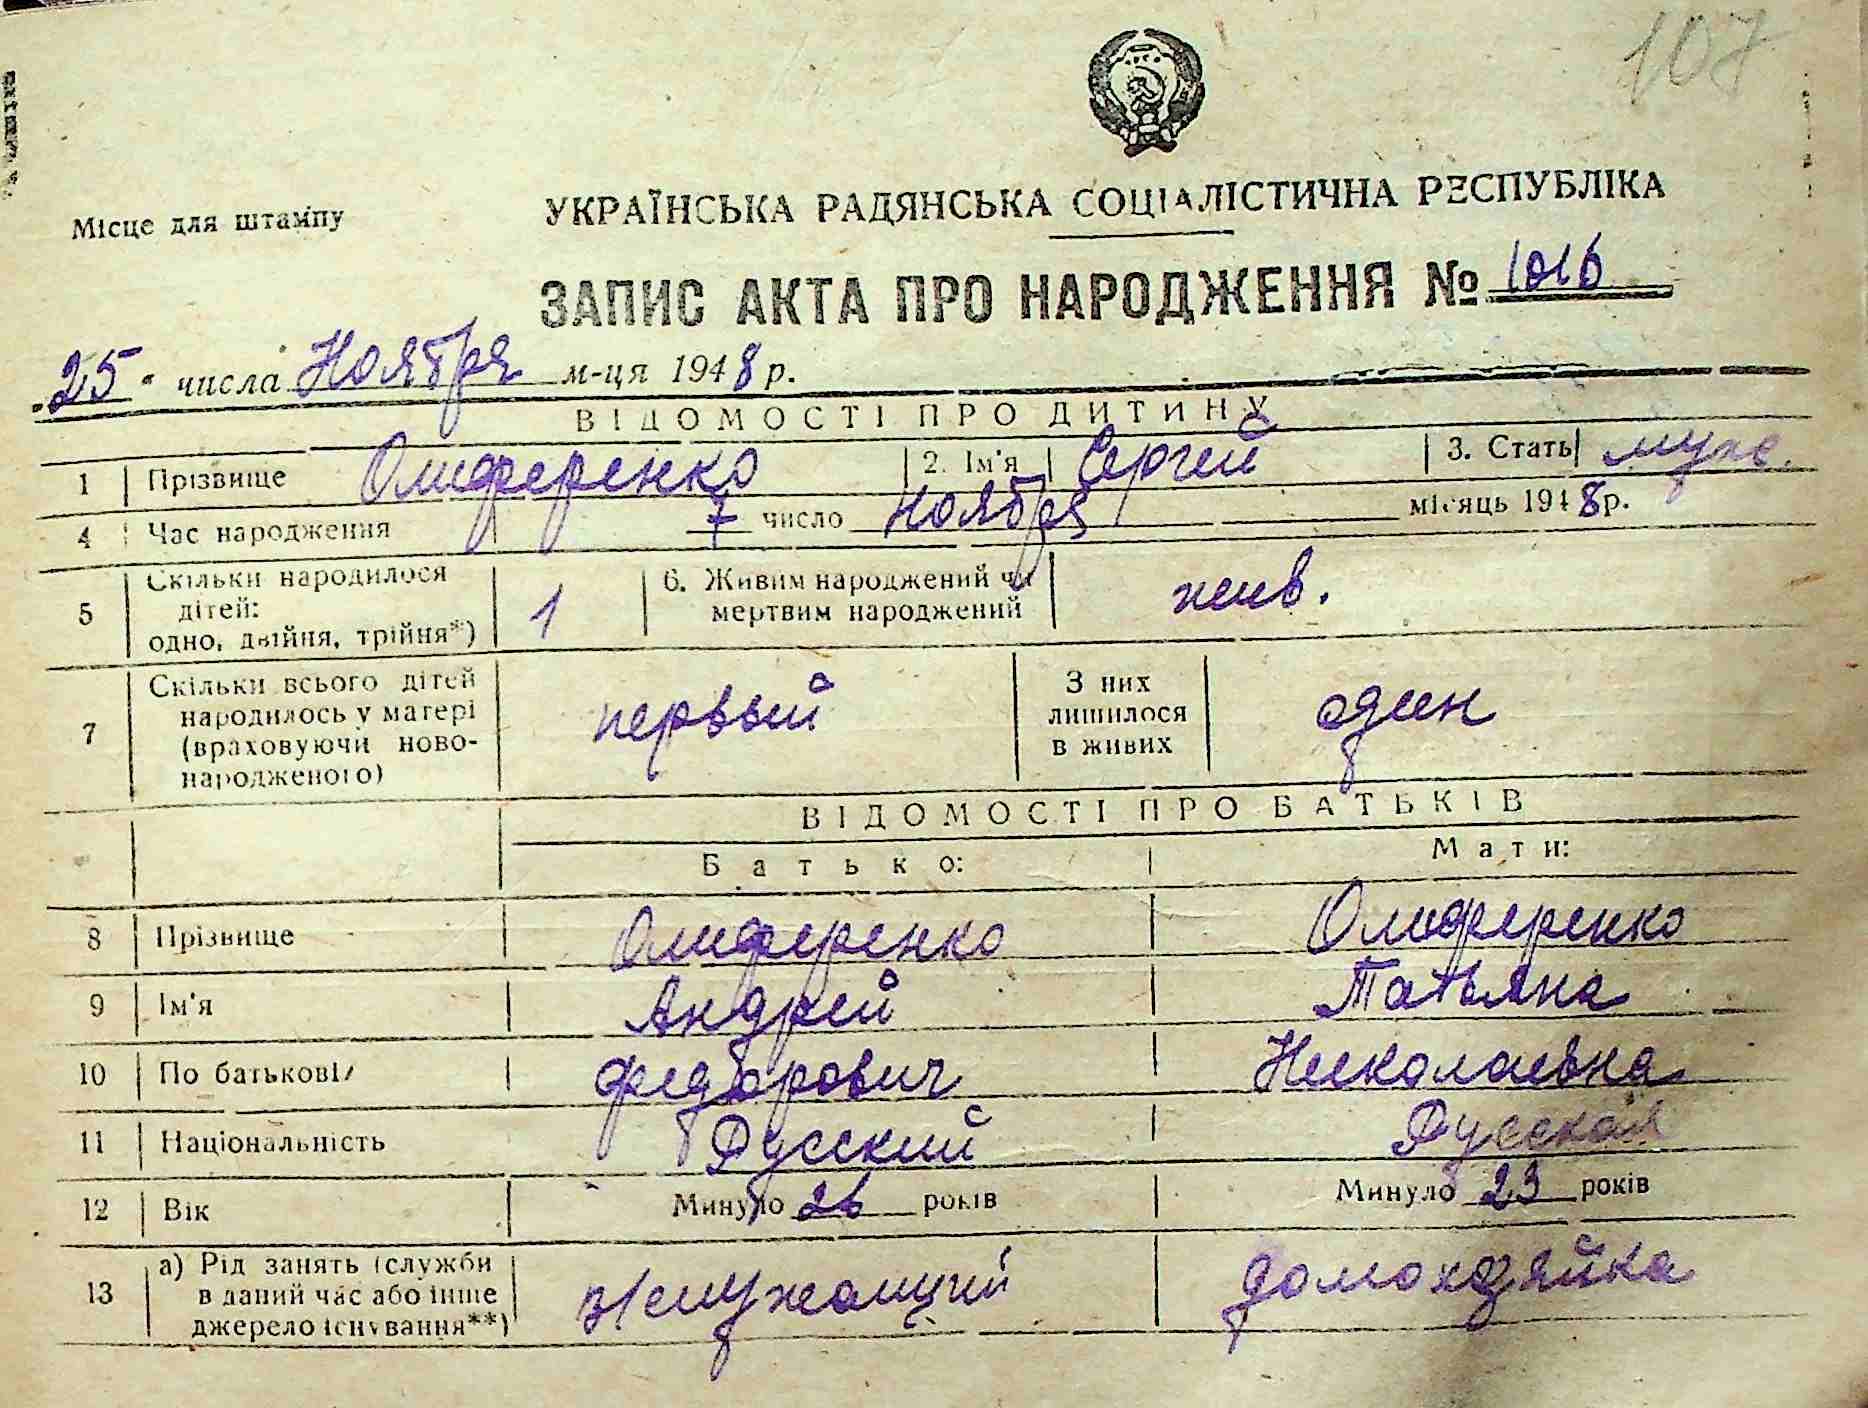 107
Місце для штампу
УКРАЇНСЬКА РАДЯНСЬКА СОЦІАЛІСТИЧНА РЕСПУБЛІКА
ЗАПИС АКТА ПРО НАРОДЖЕННЯ № 1016
25 числа Ноября м-ця 1948 р.
ВІДОМОСТІ ПРО ДИТИНУ
1 Прізвище Олиференко 2. Ім'я Сергей 3. Стать муж.
4 Час народження 7 число ноября місяць 1948 р.
5 Скільки народилося дітей: одно, двійня, трійня*) 1 6. Живим народжений чи мертвим народжений жив.
7 Скільки всього дітей народилось у матері (враховуючи новонародженого) первый З них лишилося в живих один
ВІДОМОСТІ ПРО БАТЬКІВ
Батько: Мати:
8 Прізвище Олиференко Олиференко
9 Ім'я Андрей Татьяна
10 По батькові Федорович Николаевна
11 Національність Русский Русская
12 Вік Минуло 26 років Минуло 23 років
13 а) Рід занять (служби в даний час або інше джерело існування**) служащий домохозяйка